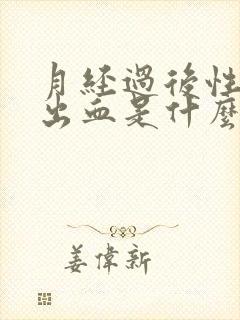 月經過後性
出血是什麼
姜偉新